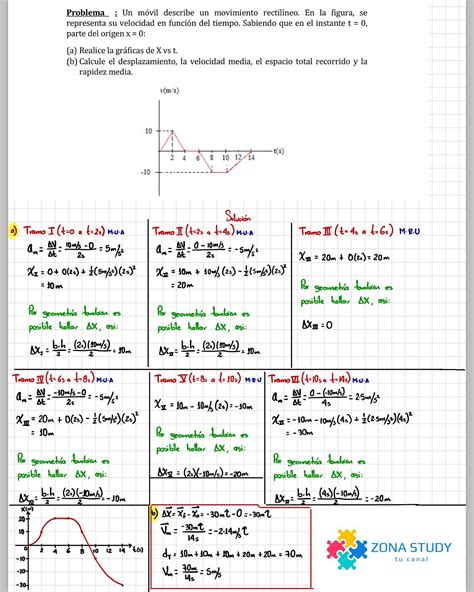 Problema : Un móvil describe un movimiento rectilíneo. En la figura, se
representa su velocidad en función del tiempo. Sabiendo que en el instante t = 0,
parte del origen x = 0:
(a) Realice la gráficas de X vs t.
(b) Calcule el desplazamiento, la velocidad media, el espacio total recorrido y la
rapidez media.
v(m/s)
10
2 4 6 8 10 12 14 t(s)
-10
Solución
a) Tramo I (t=0 a t=2s) M.U.A
am = ΔV/Δt = 10m/s-0/2s = 5m/s²
XI = 0 + 0(2s) + ½(5m/s²)(2s)²
= 10m
Por geometría también es
posible hallar ΔX, así:
ΔXI = b·h/2 = (2s)(10m/s)/2 = 10m
Tramo II (t=2s a t=4s) M.U.A
am = ΔV/Δt = 0-10m/s/2s = -5m/s²
XII = 10m + 10m/s (2s) - ½(5m/s²)(2s)²
= 20m
Por geometría también es
posible hallar ΔX, así:
ΔXII = b·h/2 = (2s)(10m/s)/2 = 10m
Tramo III (t= 4s a t=6s) M.R.U
XIII = 20m + 0(2s) = 20m
Por geometría también es
posible hallar ΔX, así:
ΔXIII = 0
Tramo IV (t=6s a t=8s) M.U.A
am = ΔV/Δt = -10m/s-0/2s = -5m/s²
XIII = 20m + 0(2s) - ½(5m/s²)(2s)²
= 10m
Por geometría también es
posible hallar ΔX, así:
ΔXIV = b·h/2 = (2s)(-10m/s)/2 = -10m
Tramo V (t=8s a t=10s) M.R.U
XV = 10m - 10m/s(2s) = -10m
Por geometría también es
posible hallar ΔX, así:
ΔXV = (2s)(-10m/s) = -20m
Tramo VI (t=10s a t=14s) M.U.A
am = ΔV/Δt = 0-(-10m/s)/4s = 2.5m/s²
XVI = -10m - 10m/s(4s) + ½(2.5m/s²)(4s)²
= -30m
Por geometría también es
posible hallar ΔX, así:
ΔXVI = b·h/2 = (4s)(-10m/s)/2 = -20m
X(m)
20
10
0 2 4 6 8 10 12 14 t(s)
-10
-20
-30
b) ΔX = Xf - Xo = -30m î - 0 = -30m î
Vm = -30m î/14s = -2.14m/s î
dT = 10m + 10m + 10m + 20m + 20m = 70m
Vm = 70m/14s = 5m/s
ZONA STUDY
tu canal